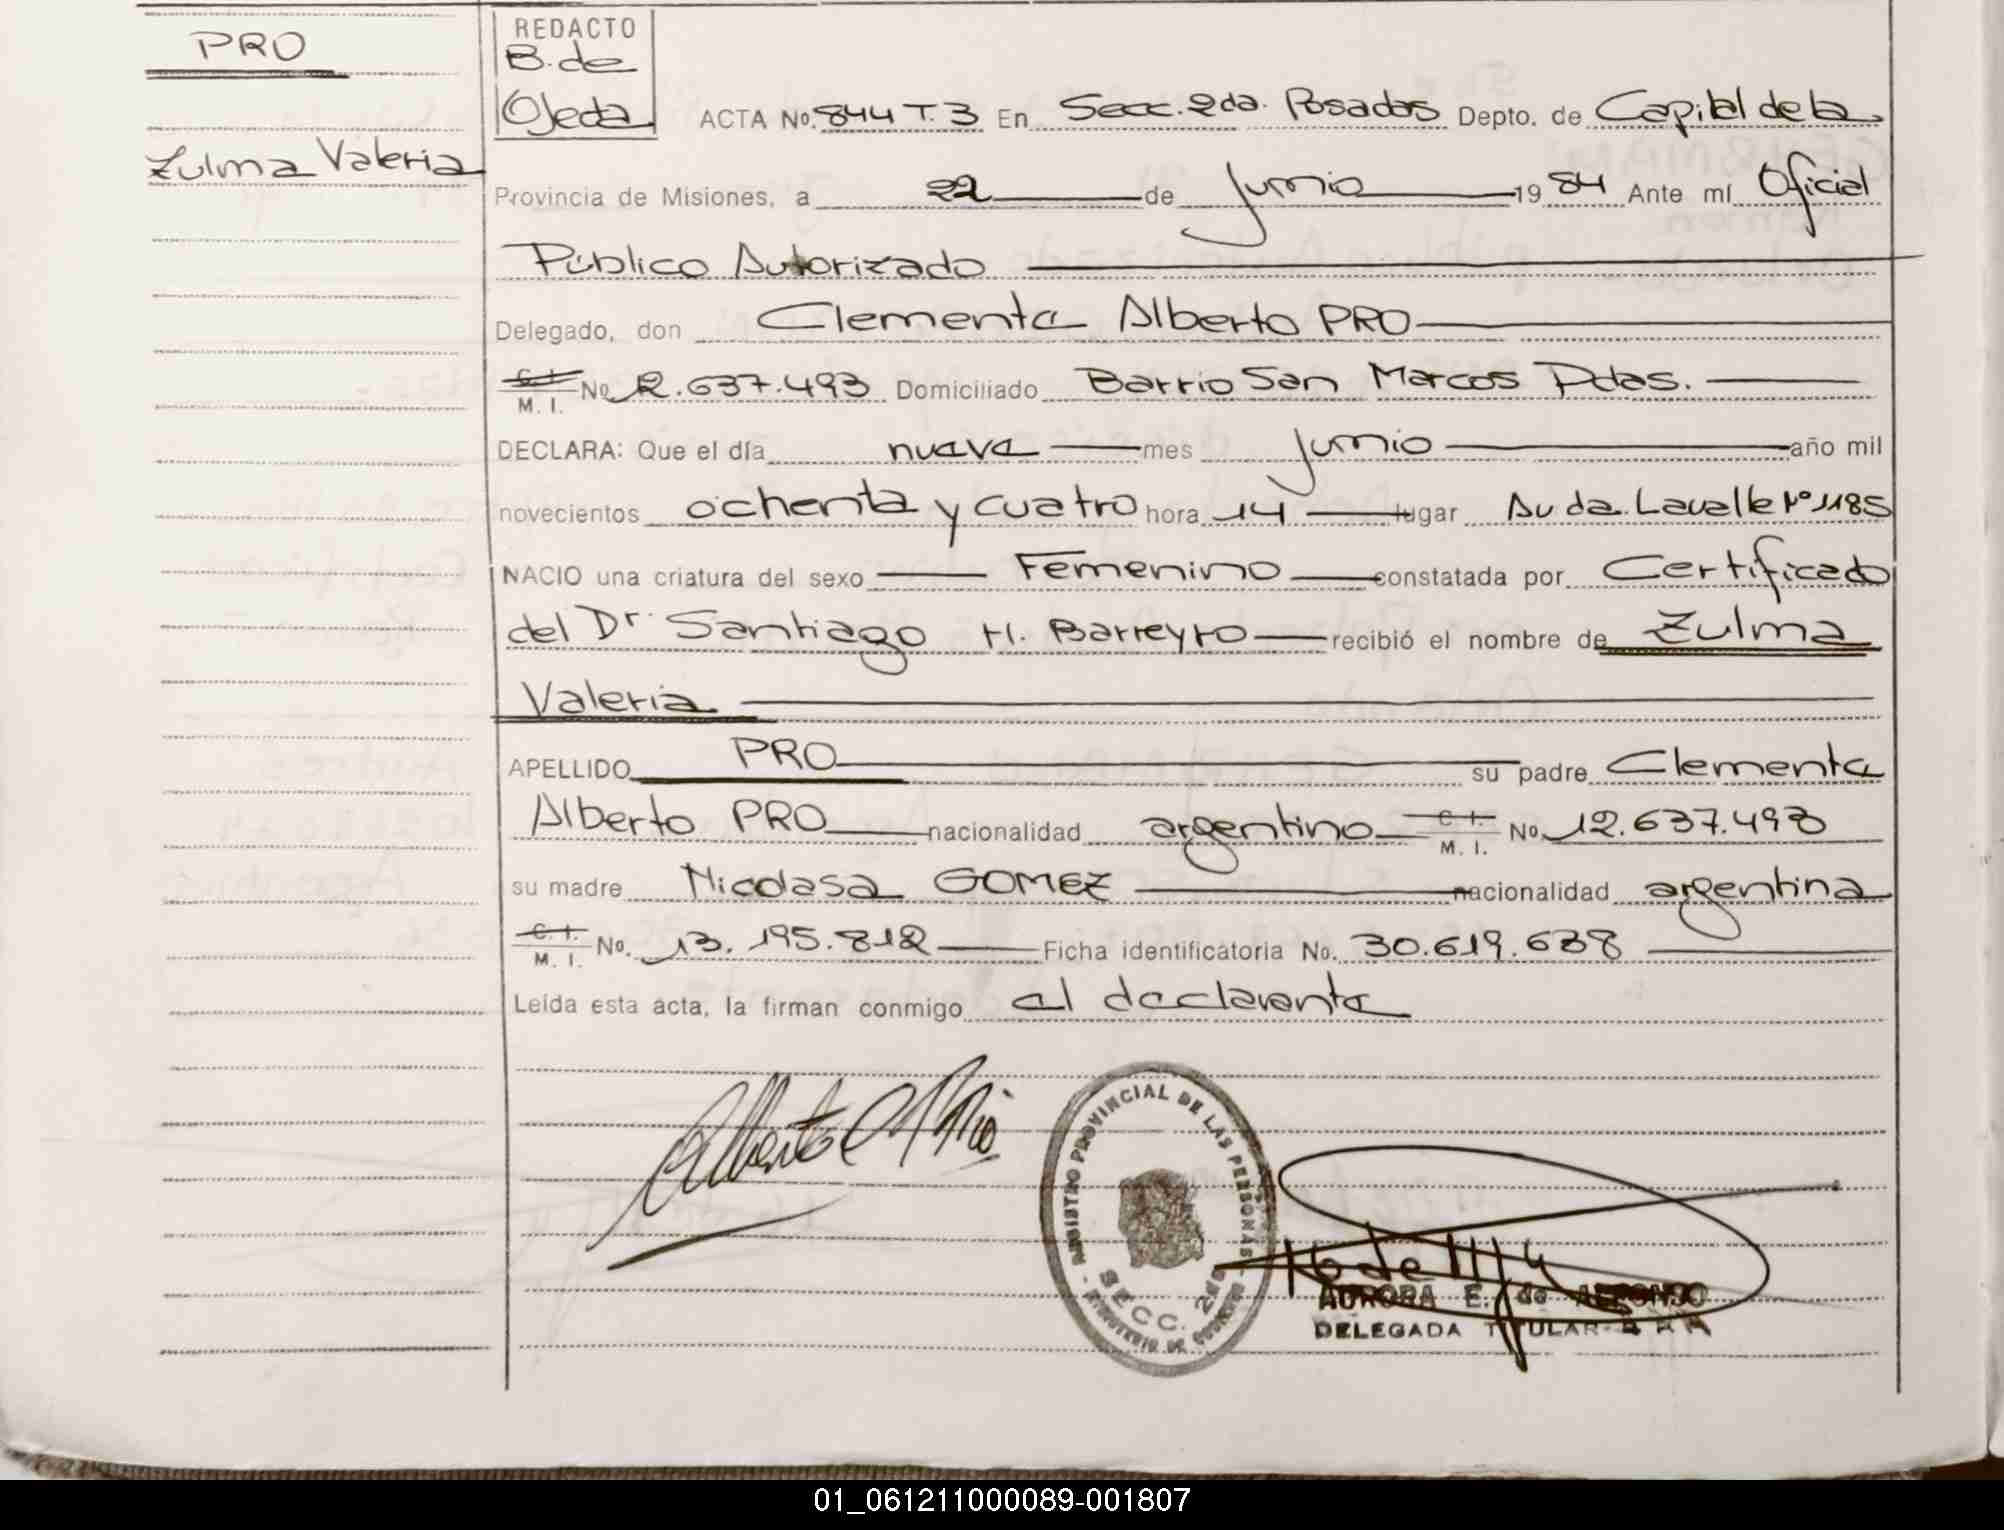 PRO
Zulma Valeria
REDACTO
B. de
Ojeda
ACTA No. 844 T. 3 En Secc. 2da. Posadas Depto. de Capital de la
Provincia de Misiones, a 22 de Junio 1984 Ante mí Oficial
Público Autorizado
Delegado, don Clemente Alberto PRO
C. I. M. I. No. 12.637.493 Domiciliado Barrio San Marcos Pdas.
DECLARA: Que el día nueve mes Junio año mil
novecientos ochenta y cuatro hora 14 lugar Avda. Lavalle Nº 1185
NACIO una criatura del sexo Femenino constatada por Certificado
del Dr. Santiago H. Barreyro recibió el nombre de Zulma
Valeria
APELLIDO PRO su padre Clemente
Alberto PRO nacionalidad argentino C. I. M. I. No. 12.637.493
su madre Nicolasa GOMEZ nacionalidad argentina
C. I. M. I. No. 13.195.812 Ficha identificatoria No. 30.619.638
Leída esta acta, la firman conmigo el declarante
REGISTRO PROVINCIAL DE LAS PERSONAS
SECC. 2da
MINISTERIO DE GOBIERNO
AURORA E. de ALFONSO
DELEGADA TITULAR
01_061211000089-001807